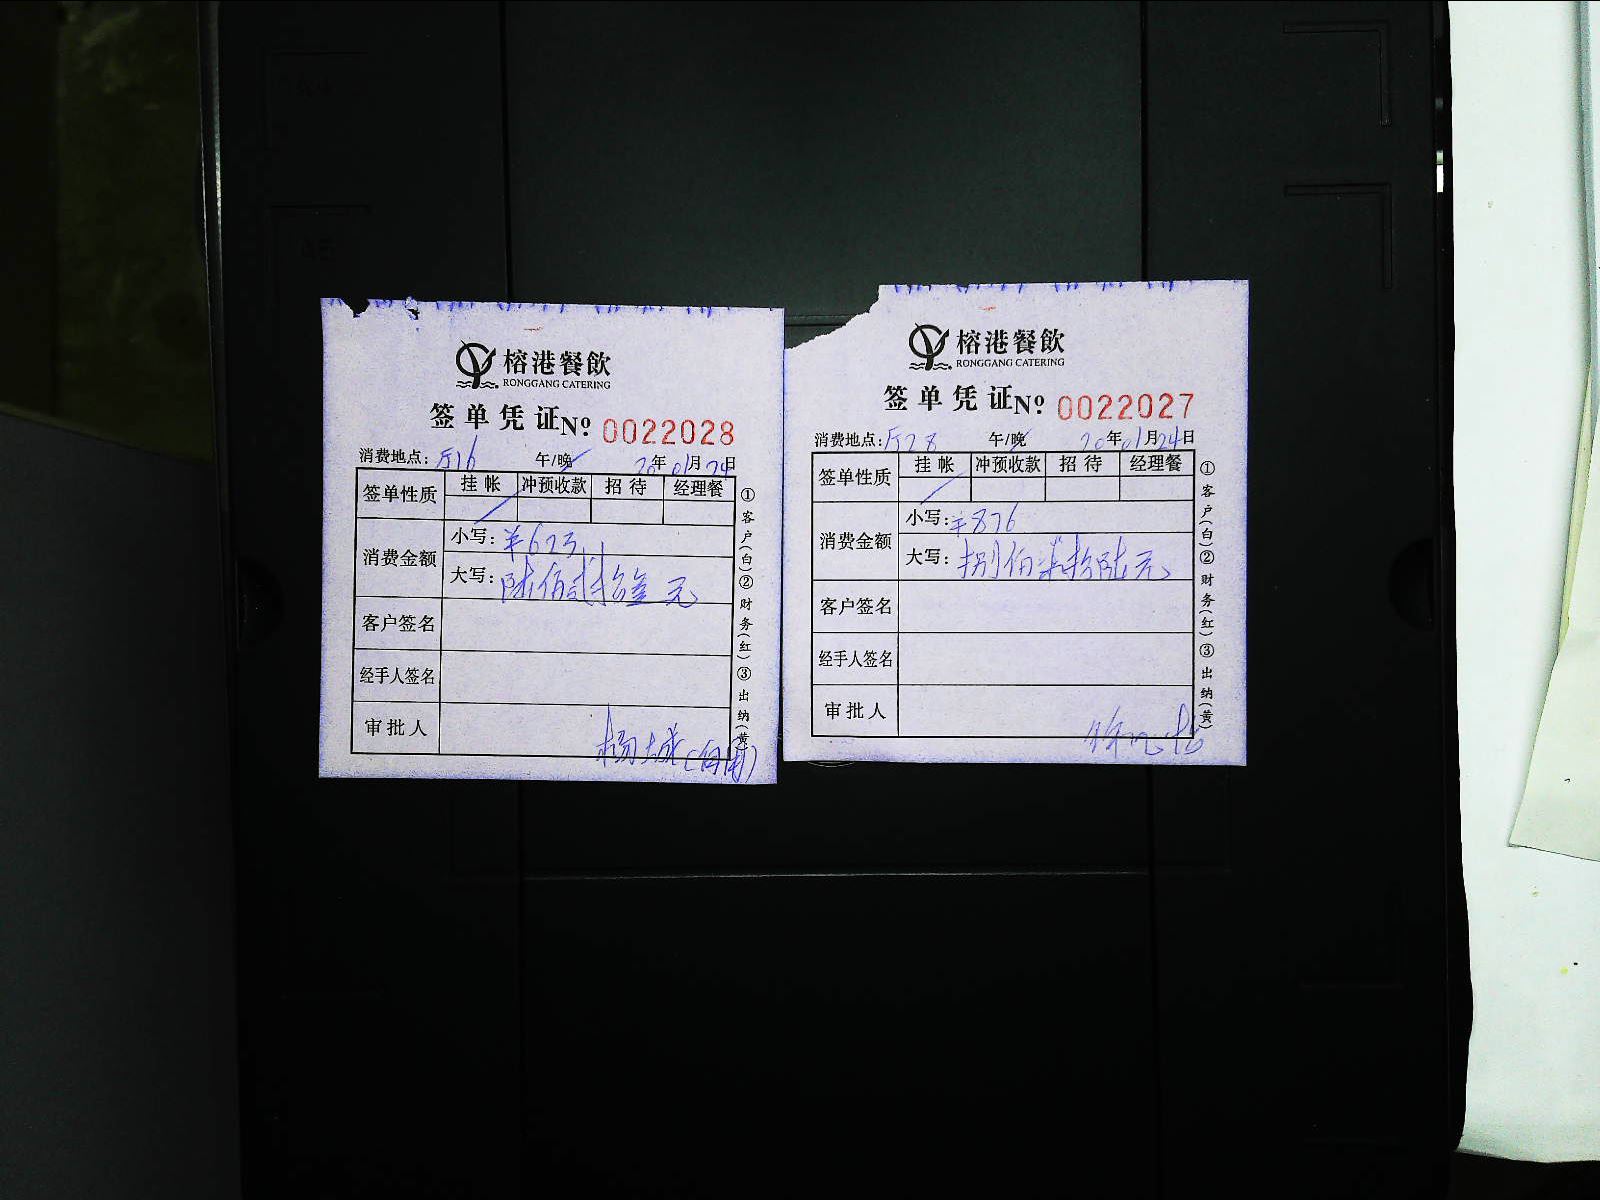 榕港餐飲
RONGGANG CATERING
签单凭证№ 0022028
消费地点: 厅16 午/晚 20年01月24日
签单性质 挂帐 冲预收款 招待 经理餐
消费金额
小写: ¥623
大写: 陆佰贰拾叁元
客户签名
经手人签名
审批人
①客户(白)②财务(红)③出纳(黄)
榕港餐飲
RONGGANG CATERING
签单凭证№ 0022027
消费地点: 厅28 午/晚 20年01月24日
签单性质 挂帐 冲预收款 招待 经理餐
消费金额
小写: ¥876
大写: 捌佰柒拾陆元
客户签名
经手人签名
审批人
①客户(白)②财务(红)③出纳(黄)